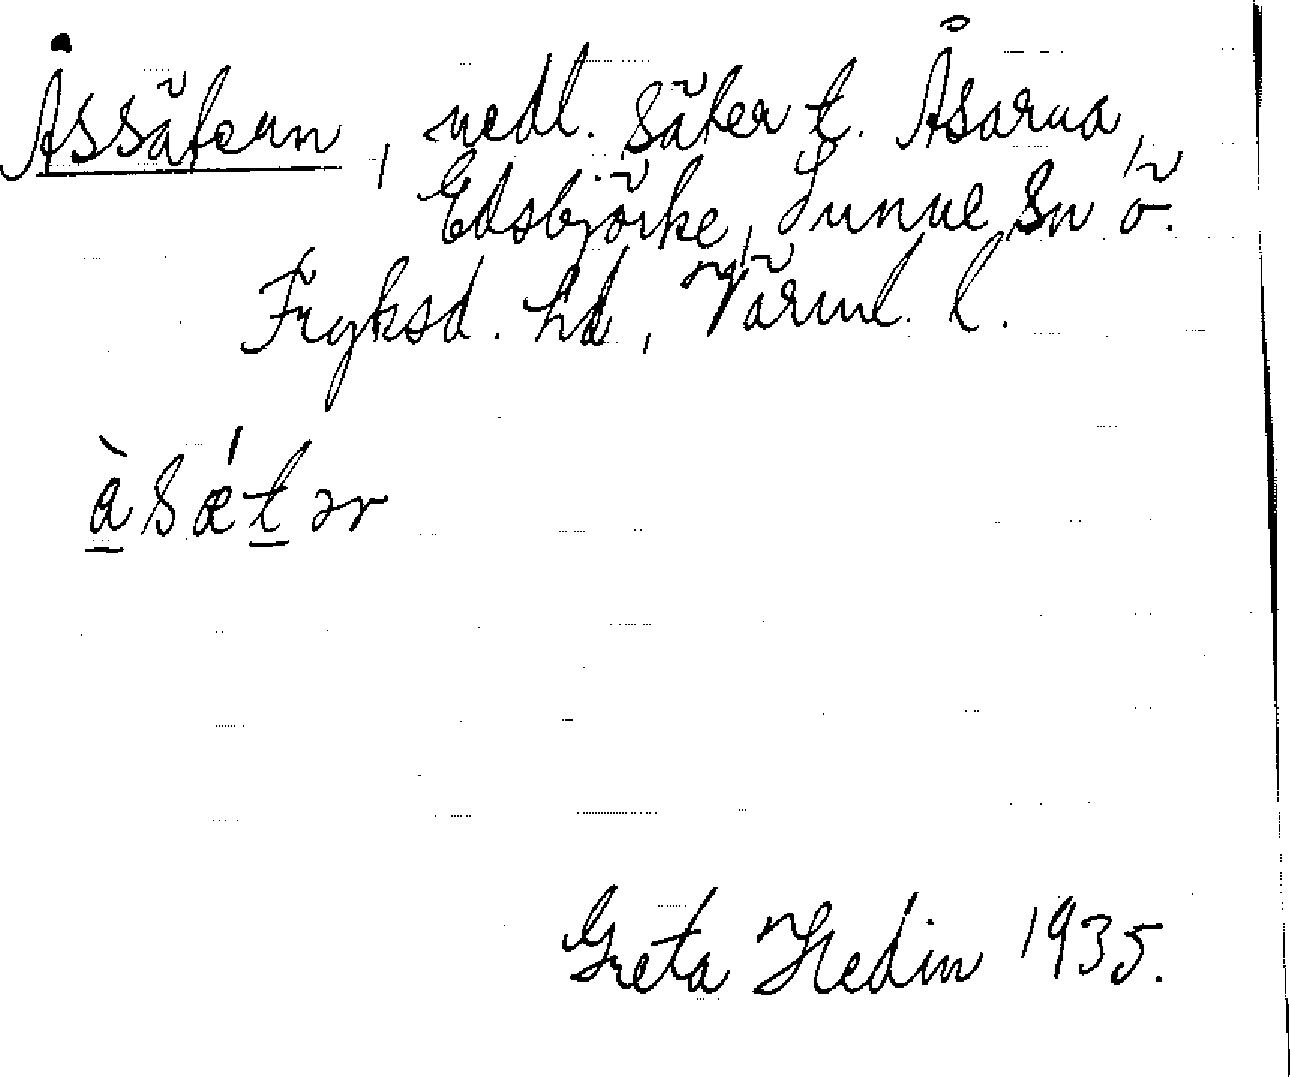 Åssätern, nedl. säter t. Åsarna,
Edsbjörke, Sunne sn ö.
Fryksd. hd, Värml. l.
à s ǽ t ər
Greta Hedin 1935.